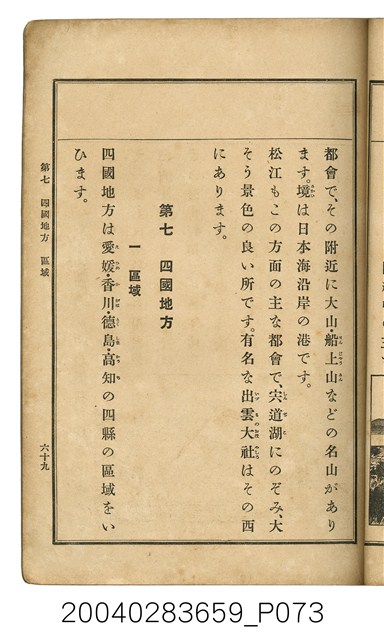 都會で、その附近に大山・船上山などの名山があり
ます。境は日本海沿岸の港です。
松江もこの方面の主な都會で、宍道湖にのぞみ、大
そう景色の良い所です。有名な出雲大社はその西
にあります。
第七 四國地方
一 區域
四國地方は愛媛・香川・德島・高知の四縣の區域をい
ひます。
第七 四國地方 區域
六十九
20040283659_P073